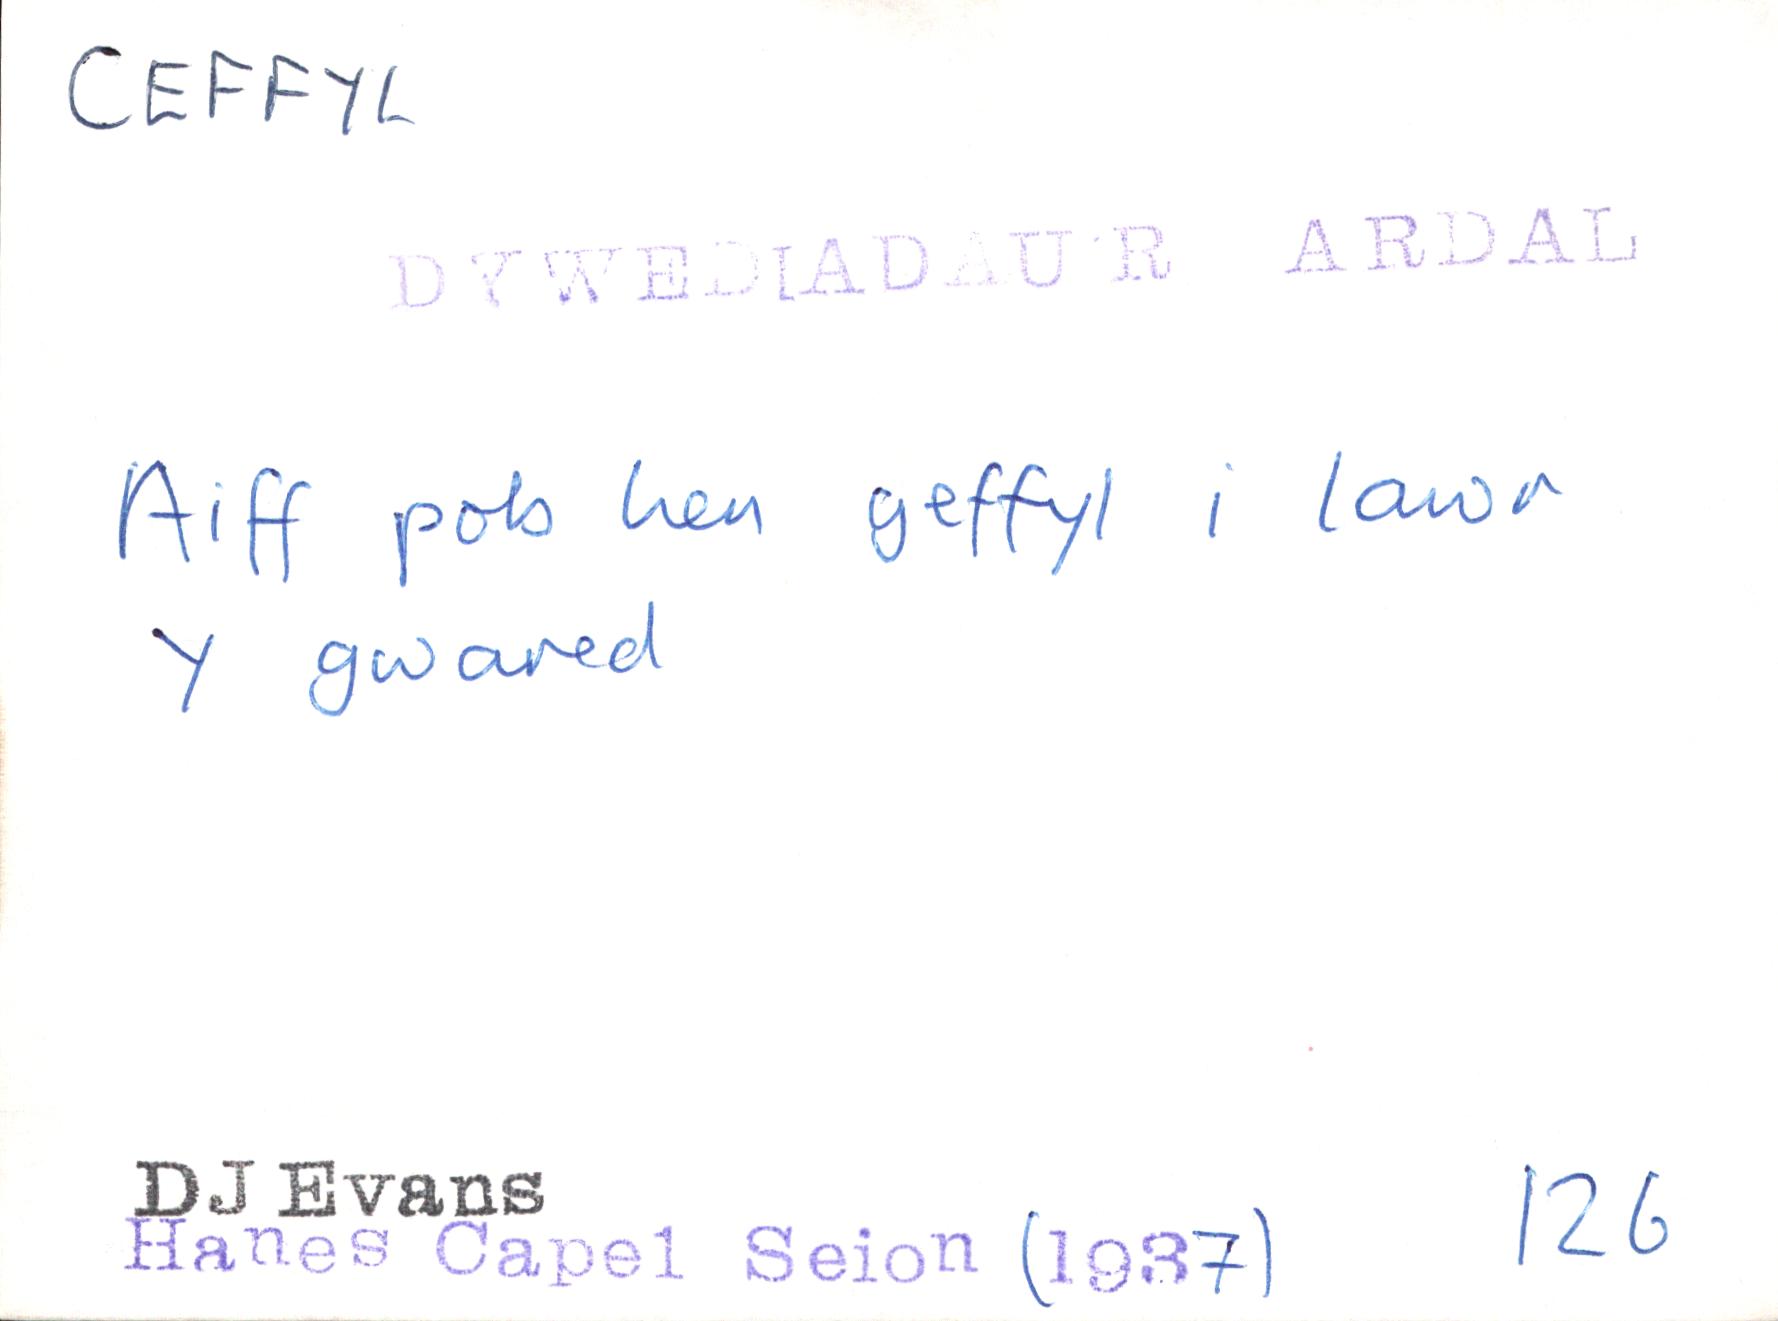 CEFFYL
DYWEDIADAU'R ARDAL
Aiff pob hen geffyl i lawr
y gwared
DJ Evans
Hanes Capel Seion (1937) 126